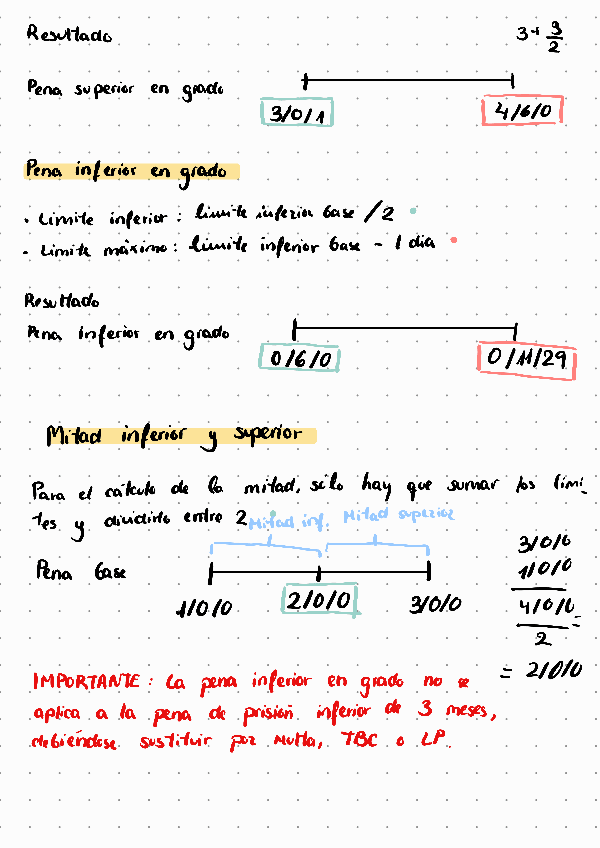 Resultado
3 + 3/2
Pena superior en grado
3/0/1
4/6/0
Pena inferior en grado
· Límite inferior: límite inferior base /2
- Límite máximo: límite inferior base - 1 día
Resultado
Pena inferior en grado
0/6/0
0/11/29
Mitad inferior y superior
Para el cálculo de la mitad, sólo hay que sumar los lími-
tes y dividirlo entre 2
Mitad inf.
Mitad superior
Pena base
1/0/0
2/0/0
3/0/0
3/0/0
1/0/0
4/0/0
2
=
= 2/0/0
IMPORTANTE: La pena inferior en grado no se
aplica a la pena de prisión inferior de 3 meses,
debiéndose sustituir por Multa, TBC o LP.